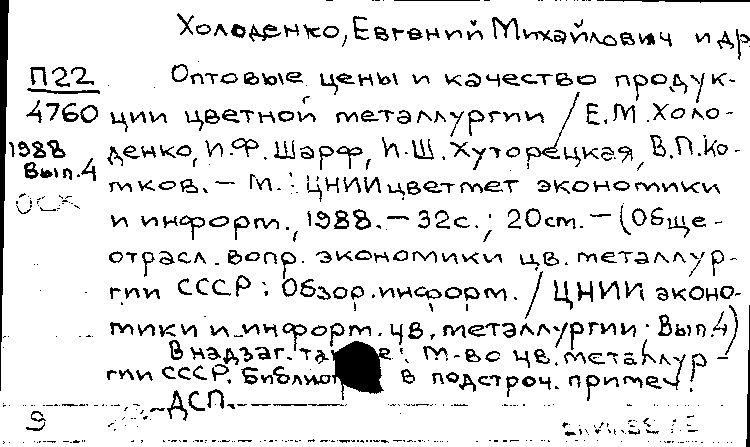 Холоденко, Евгений Михайлович и др
П22 Оптовые цены и качество продук-
4760 ции цветной металлургии / Е.М. Холо-
1988 денко, И.Ф. Шарф, И.Ш. Хуторецкая, В.П. Ко-
Вып.4 тков. – М.: ЦНИИцветмет экономики
ОСХ и информ., 1988. – 32с.; 20см. – (Обще-
отрасл. вопр. экономики цв. металлур-
гии СССР: Обзор. информ. / ЦНИИ эконо-
мики и информ. цв. металлургии; Вып.4)
В надзаг. также: М-во цв. металлур-
гии СССР. Библиогр. в подстроч. примеч.
– ДСП.
9